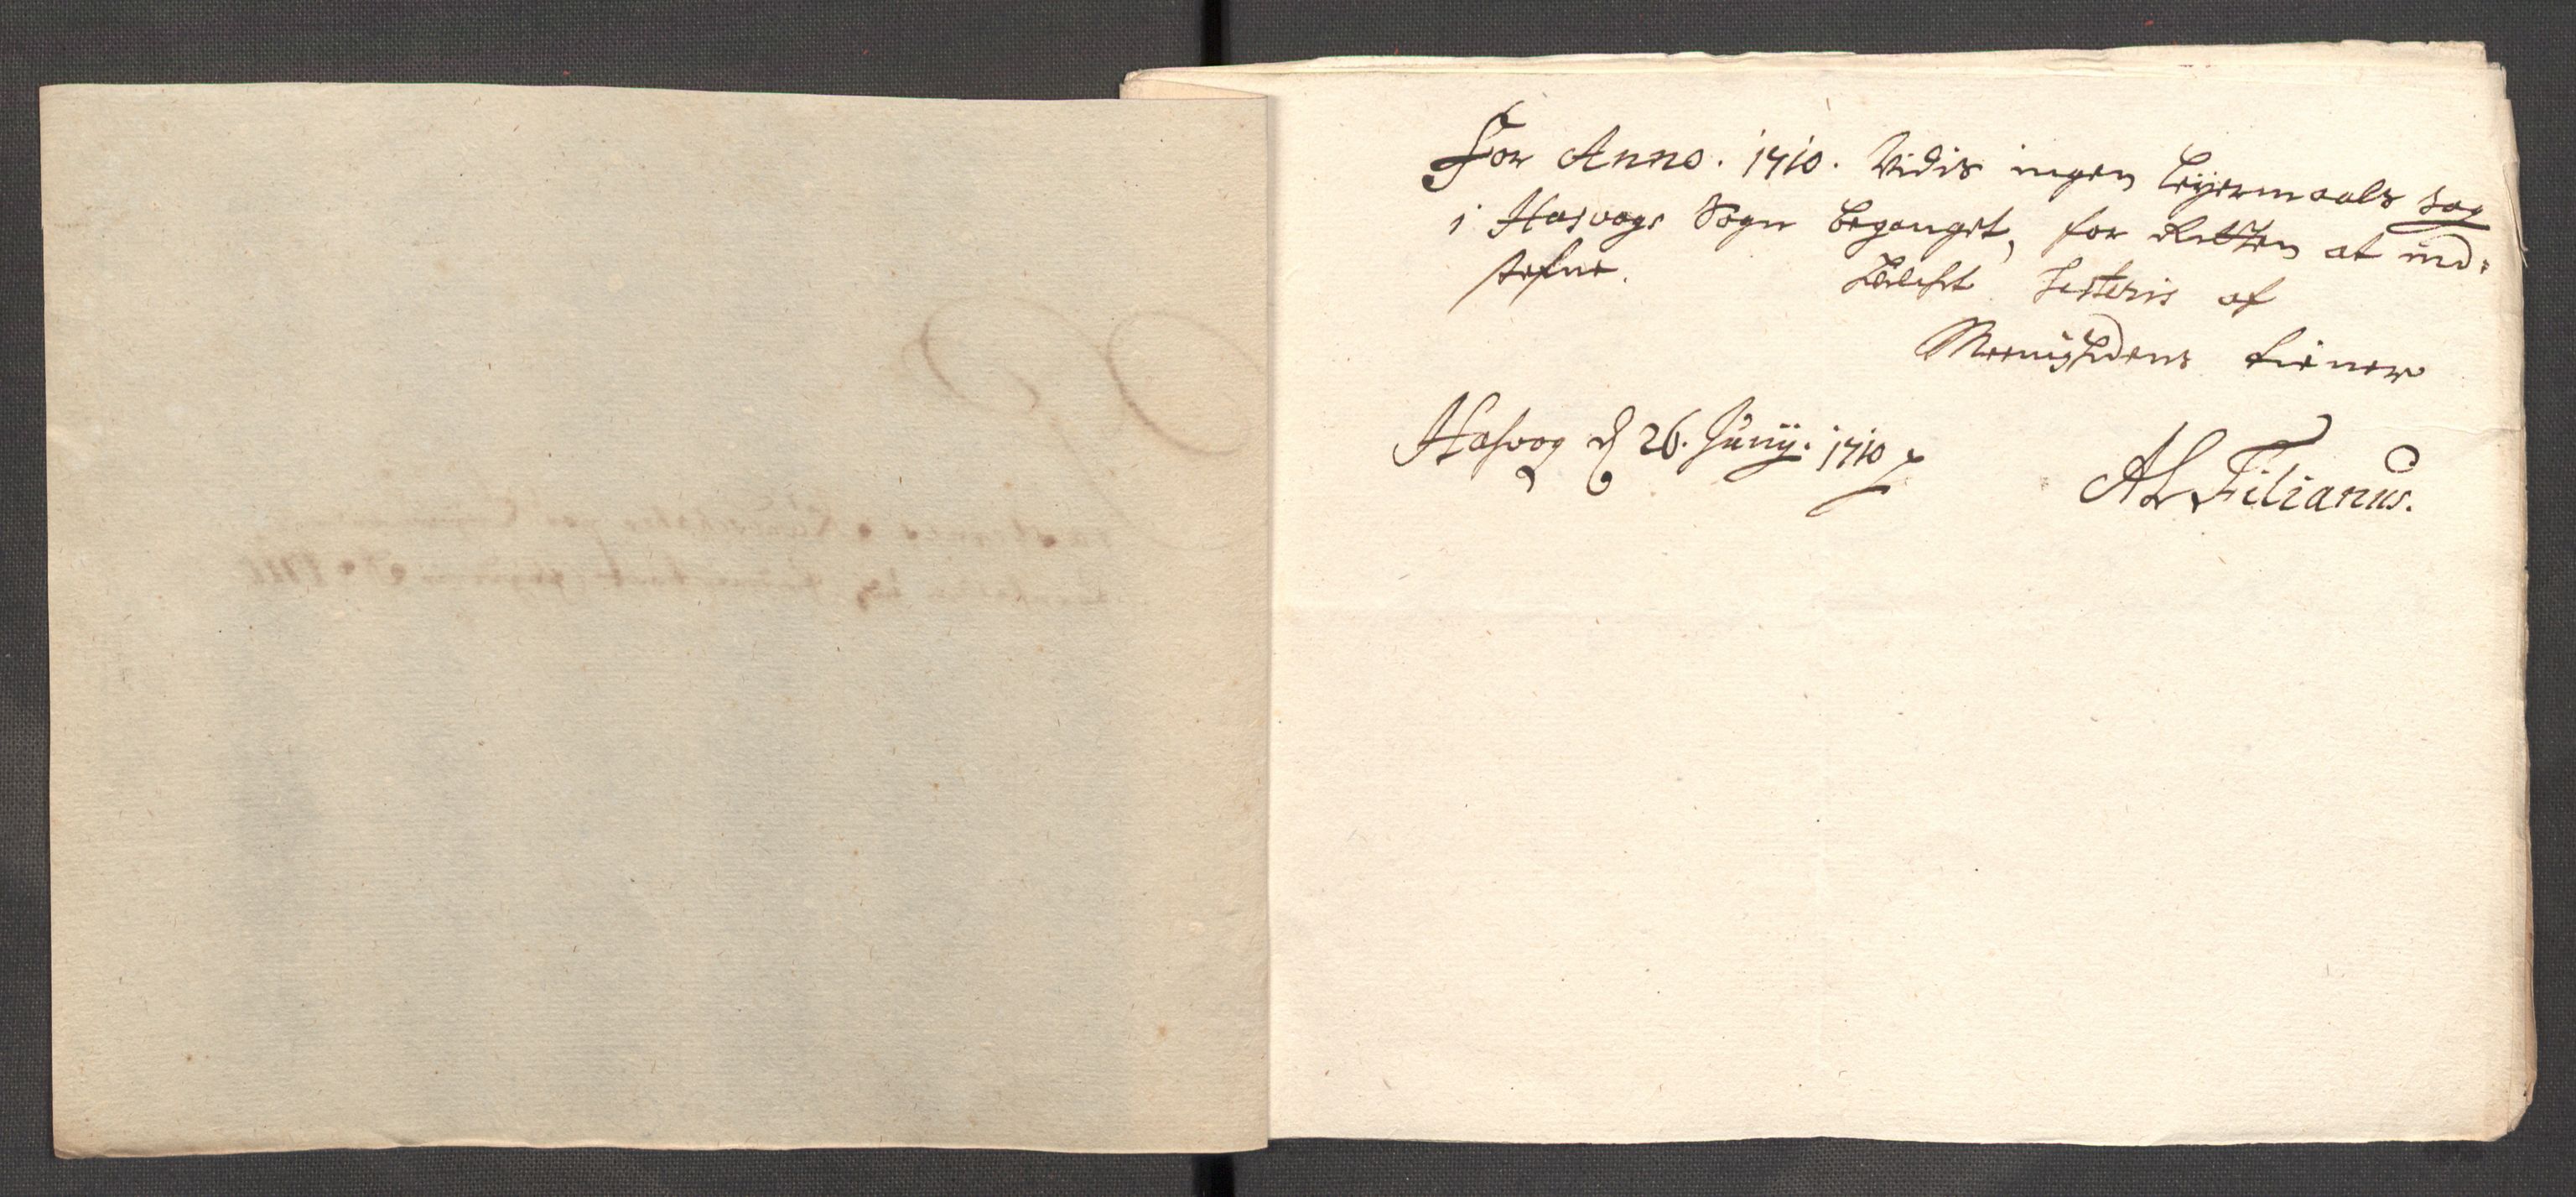 For Anno. 1710. Vidis ingen Leÿermaals sag
i Hasvogs Sogn beganget, for Retten at ind-
stefne. testeris af
Meenighedens tiener
Hasvog d 26. Junÿ. 1710
AL Filianus.